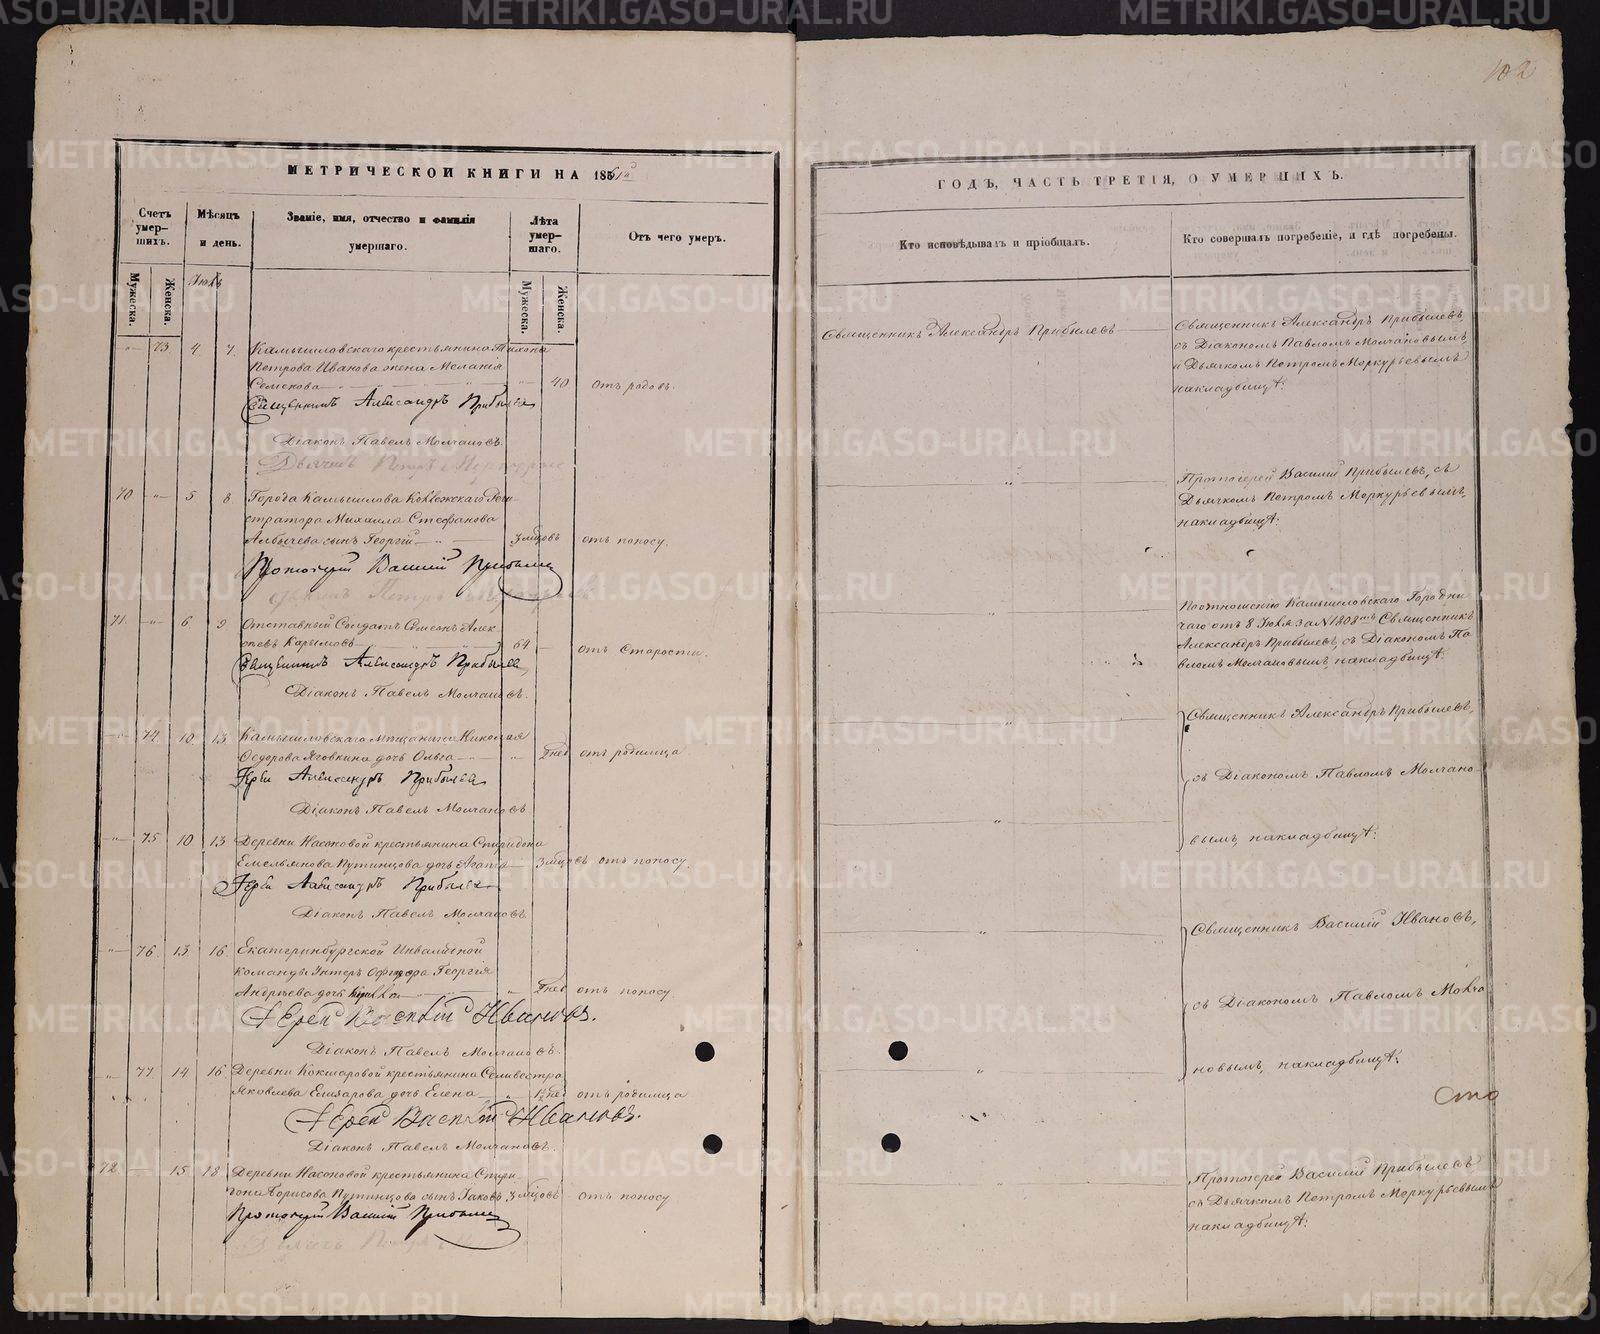 МЕТРИЧЕСКОЙ КНИГИ НА 1851й
Счетъ умер-шихъ.
Мѣсяцъ и день.
Званіе, имя, отчество и фамилія умершаго.
Лѣта умер-шаго.
Отъ чего умеръ.
Мужеска. Женска.
Мужеска. Женска.
Іюль
73 4 7 Камышловскаго крестьянина Тихона
Петрова Иванова жена Меланія
Семенова 40 отъ родовъ.
Священникъ Александръ Прибылевъ
Діаконъ Павелъ Молчановъ.
Дьячекъ Петръ
70 5 8 Города Камышлова Коллежскаго Реги
стратора Михаила Стефанова
сынъ Георгій 3 мѣсцовъ отъ поносу.
Протоіерей Василій Прибылевъ
71. 6. 9 Отставный Солдатъ Симеонъ Алек
сѣевъ 64 отъ старости.
Священникъ Александръ Прибылевъ
Діаконъ Павелъ Молчановъ.
74. 10. 13. Камышловскаго мѣщанина Николая
Ѳедорова дочь Ольга отъ родимца
Іерей Александръ Прибылевъ
Діаконъ Павелъ Молчановъ
75 10 13 Деревни Насоновой крестьянина Спиридона
Емельянова Путинцова дочь Агата 3 мѣсцовъ отъ поносу.
Іерей Александръ Прибылевъ
Діаконъ Павелъ Молчановъ
76 13 16 Екатеринбургской Инвалидной
команды Унтеръ Офицера Георгія
Андреева дочь отъ поносу.
Іерей Василій Ивановъ.
Діаконъ Павелъ Молчановъ.
77 14 16 Деревни Кокшаровой крестьянина Селивестра
Яковлева Елизарова дочь Елена отъ родимца
Іерей Василій Ивановъ.
Діаконъ Павелъ Молчановъ.
72. 15 18 Деревни Насоновой крестьянина
Борисова Путинцова сынъ Іаковъ 3 мѣсцовъ отъ поносу
Протоіерей Василій Прибылевъ
102
ГОДЪ, ЧАСТЬ ТРЕТІЯ, О УМЕРШИХЪ.
Кто исповѣдывалъ и пріобщалъ.
Кто совершалъ погребеніе, и гдѣ погребены.
Священникъ Александръ Прибылевъ
Священникъ Александръ Прибылевъ,
съ Діакономъ Павломъ Молчановымъ,
и Дьячкомъ Петромъ Меркурьевымъ
накладбищѣ.
Протоіерей Василій Прибылевъ, съ
Дьячкомъ Петромъ Меркурьевымъ,
накладбищѣ.
Поотношенію Камышловскаго Городни
чаго отъ 8 Іюля за N 1808мъ Священникъ
Александръ Прибылевъ, съ Діакономъ Па
вломъ Молчановымъ, накладбищѣ.
Священникъ Александръ Прибылевъ,
съ Діакономъ Павломъ Молчано
вымъ, накладбищѣ.
Священникъ Василій Ивановъ,
съ Діакономъ Павломъ Молча
новымъ, накладбищѣ.
Сто
Протоіерей Василій Прибылевъ,
съ Дьячкомъ Петромъ Меркурьевымъ
накладбищѣ.
METRIKI.GASO-URAL.RU